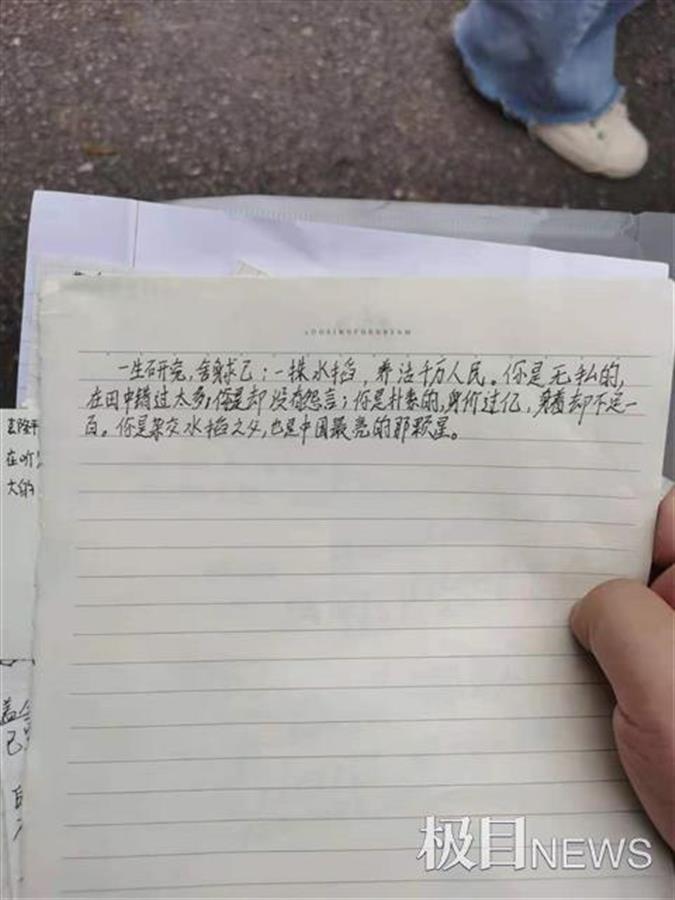 LOOKINGFORDREAM
一生研究,舍身求己:一株水稻,养活千万人民。你是无私的,
在田中错过太多,你是却没有怨言;你是朴素的,身价过亿,身着却不足一
百。你是杂交水稻之父,也是中国最亮的那颗星。
袁隆平
在听
大的
极目NEWS